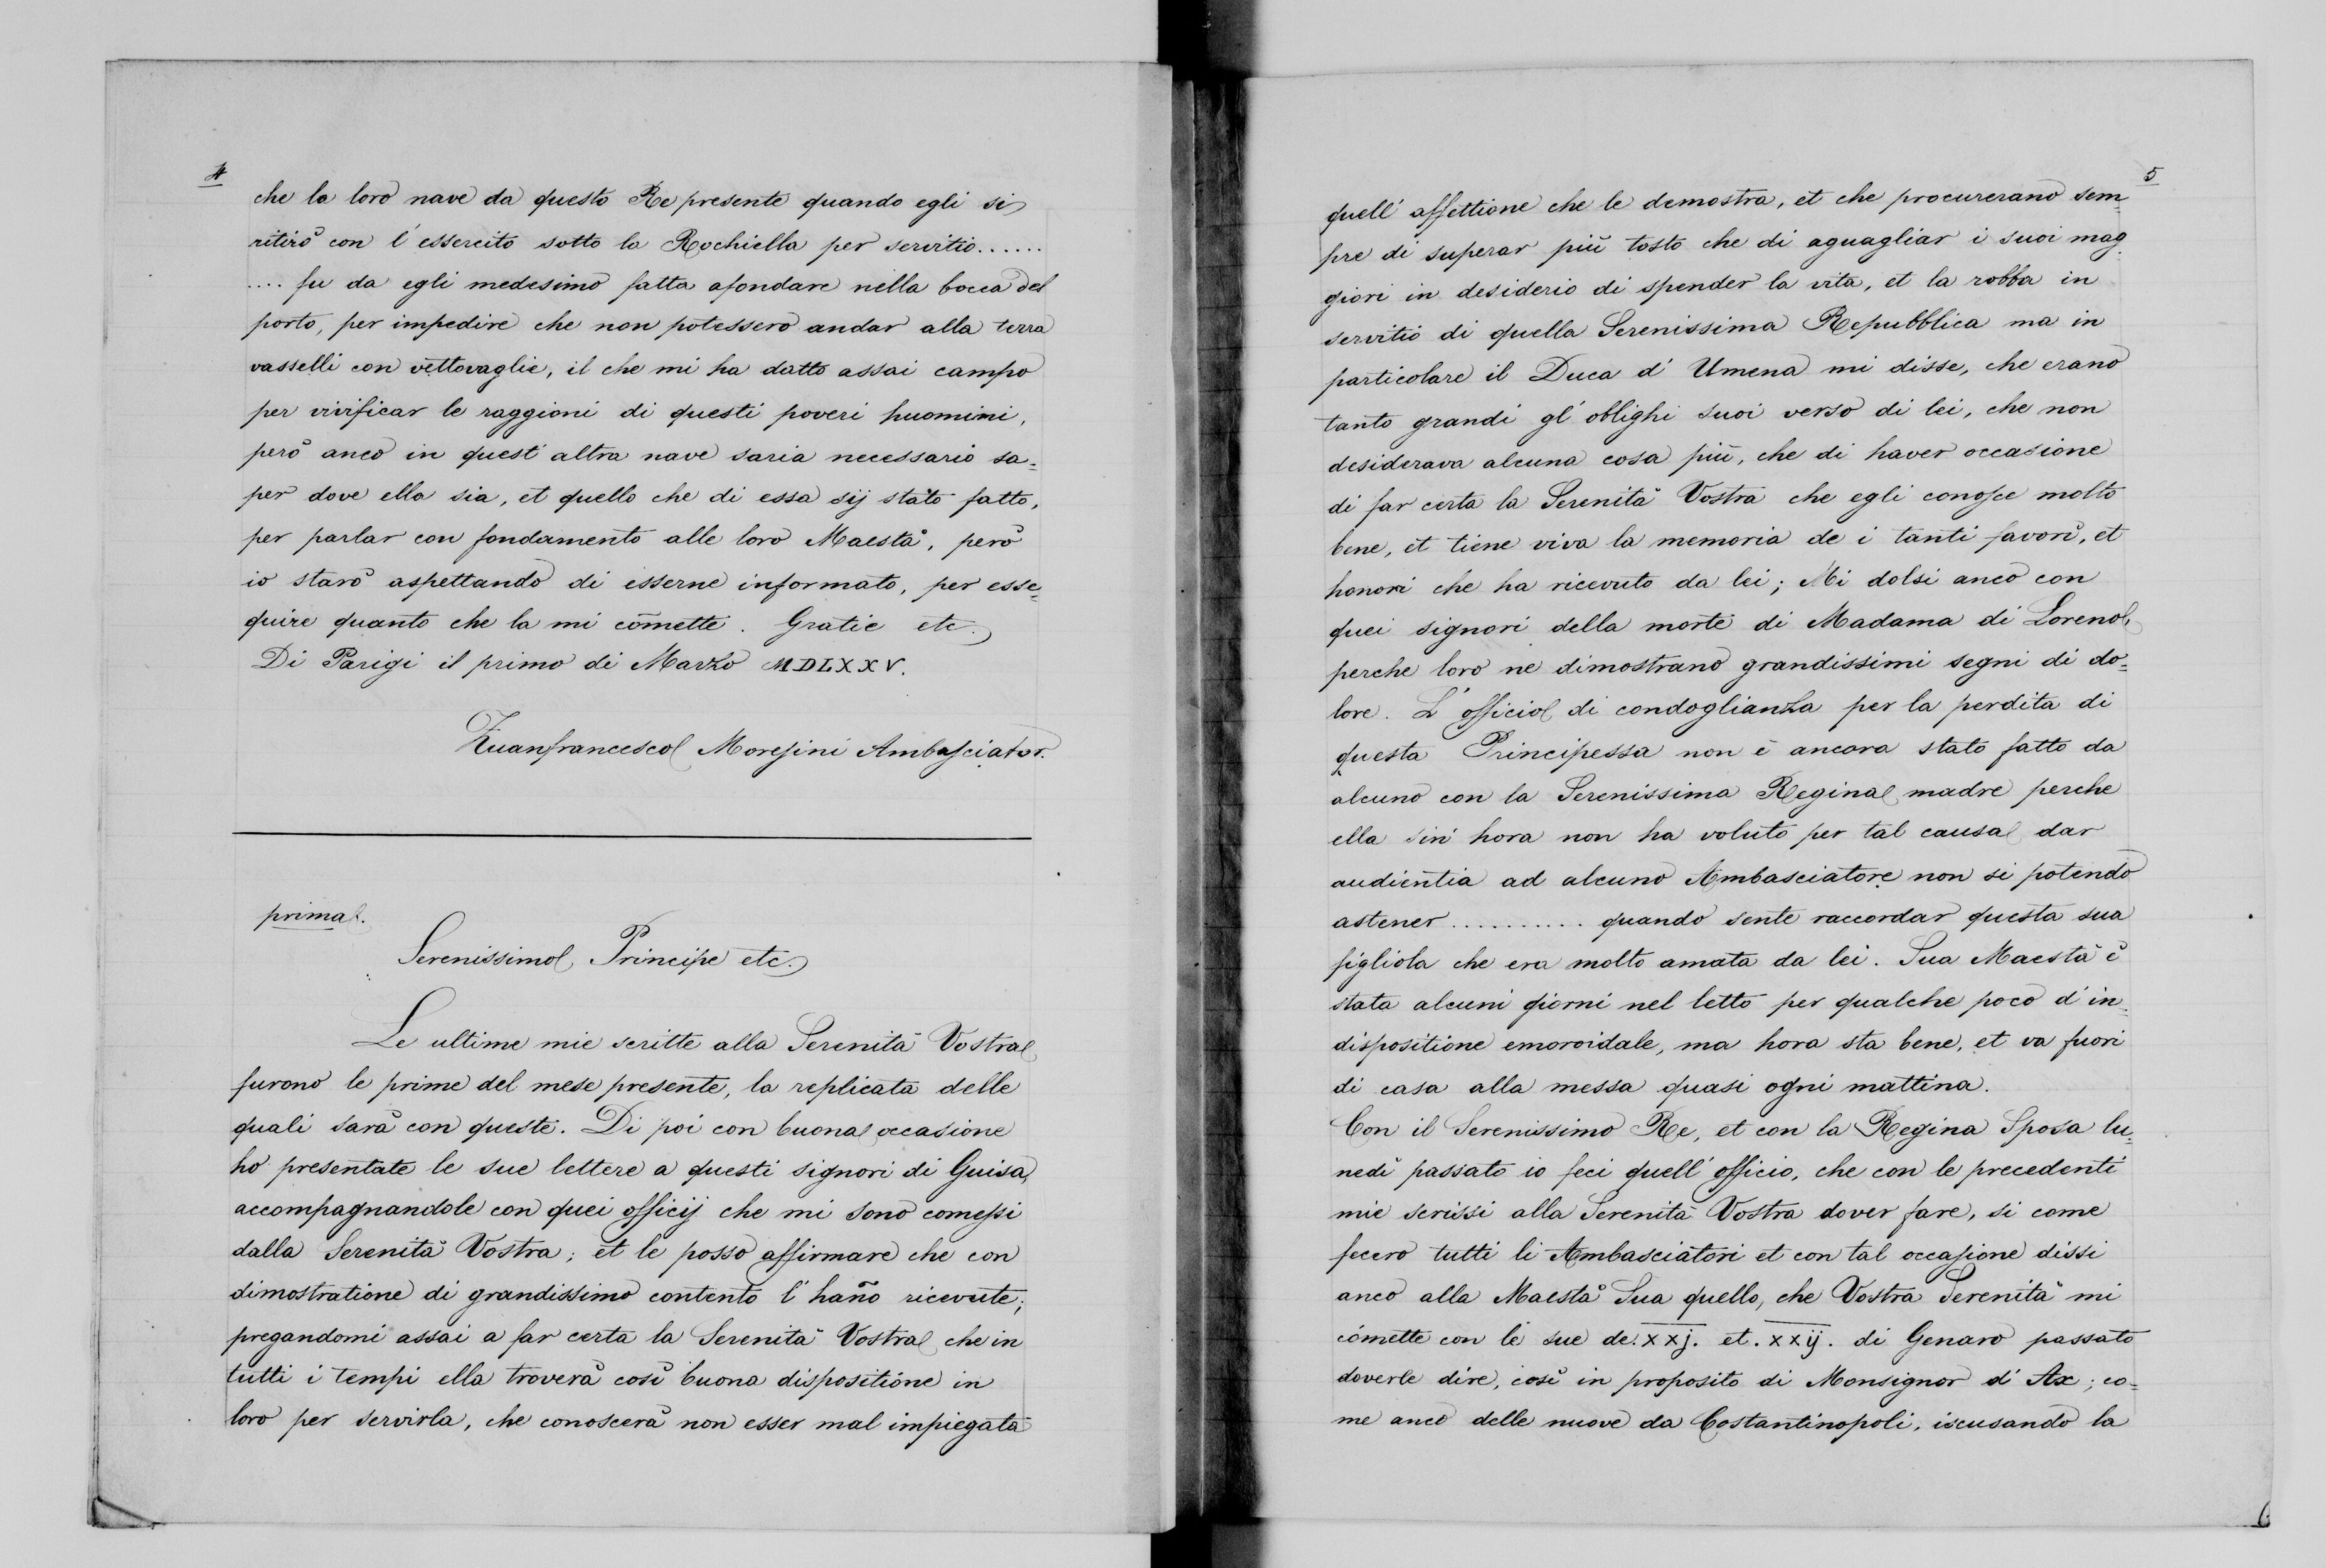 4
che la loro nave da questo Re presente quando egli si
ritirò con l'essercito sotto la Rochiella per servitio......
.... fu da egli medesimo fatta afondare nella bocca del
porto, per impedire che non potessero andar alla terra
vasselli con vettovaglie, il che mi ha datto assai campo
per vivificar le raggioni di questi poveri huomini,
però anco in quest'altra nave saria necessario sa=
per dove ella sia, et quello che di essa sij stato fatto,
per parlar con fondamento alle loro Maestà, però
io starò aspettando di esserne informato, per esse=
quire quanto che la mi com̃ette. Gratie etc.
Di Parigi il primo di Marzo MDLXXV.
Zuanfrancesco Moresini Ambasciator.
prima.
Serenissimo Principe etc.
Le ultime mie scritte alla Serenità Vostra
furono le prime del mese presente, la replicata delle
quali sarà con queste. Di poi con buona occasione
ho presentate le sue lettere a questi signori di Guisa,
accompagnandole con quei officij che mi sono comessi
dalla Serenità Vostra; et le posso affirmare che con
dimostratione di grandissimo contento l'hañо ricevute;
pregandomi assai a far certa la Serenità Vostra che in
tutti i tempi ella troverà così buona dispositione in
loro per servirla, che conoscerà non esser mal impiegata
5
quell'affettione che le demostra, et che procurerano sem=
pre di superar più tosto che di aguagliar i suoi mag=
giori in desiderio di spender la vita, et la robba in
servitio di quella Serenissima Repubblica ma in
particolare il Duca d'Umena mi disse, che erano
tanto grandi gl'oblighi suoi verso di lei, che non
desiderava alcuna cosa più, che di haver occasione
di far certa la Serenità Vostra che egli conosce molto
bene, et tiene viva la memoria de i tanti favori, et
honori che ha ricevuto da lei; Mi dolsi anco con
quei signori della morte di Madama di Loreno,
perche loro ne dimostrano grandissimi segni di do=
lore. L'officio di condoglianza per la perdita di
questa Principessa non è ancora stato fatto da
alcuno con la Serenissima Regina madre perche
ella sin'hora non ha voluto per tal causa dar
audientia ad alcuno Ambasciatore non si potendo
astener .......... quando sente raccordar questa sua
figliola che era molto amata da lei. Sua Maestà è
stata alcuni giorni nel letto per qualche poco d'in=
dispositione emoroidale, ma hora sta bene, et va fuori
di casa alla messa quasi ogni mattina.
Con il Serenissimo Re, et con la Regina Sposa lu=
nedì passato io feci quell'officio, che con le precedenti
mie scrissi alla Serenità Vostra dover fare, si come
fecero tutti li Ambasciatori et con tal occasione dissi
anco alla Maestà Sua quello, che Vostra Serenità mi
comette con le sue de. xxj. et. xxij. di Genaro passato
doverle dire, così in proposito di Monsignor d'Ax; co=
me anco delle nuove da Costantinopoli, iscusando la